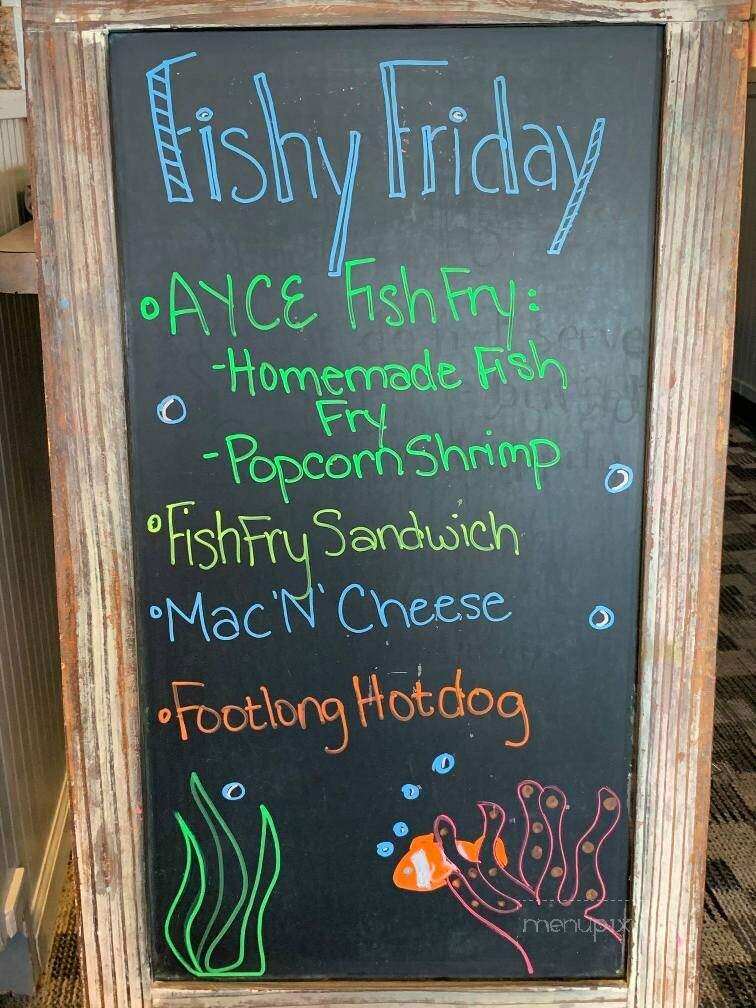 Fishy Friday
•AYCE Fish Fry:
-Homemade Fish
Fry
-Popcorn Shrimp
•Fish Fry Sandwich
•Mac 'N' Cheese
•Footlong Hotdog
menupix